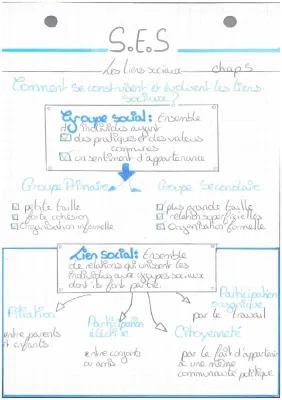 S.E.S
Les liens sociaux chap 5
Comment se construisent et évoluent les liens
sociaux?
Groupe social: Ensemble
d'individus ayant
des pratiques et des valeurs
communes
un sentiment d'appartenance
Groupe Primaire
Groupe Secondaire
petite taille
forte cohésion
organisation informelle
plus grande taille
relation superficielles
organisation formelle
Lien social: Ensemble
de relations qui unissent les
individus aux groupes sociaux
dont ils font partie.
Filiation
entre parents
et enfants
Participation
élective
entre conjoints
ou amis
Citoyenneté
par le fait d'appartenir
à une même
communauté politique
Participation
organique
par le travail